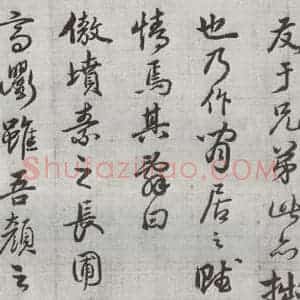 友于兄弟此亦拙
也乃作閑居之賦
情焉其辭曰
傲墳素之長圃
高衢雖吾顏之
Shufazidao.com